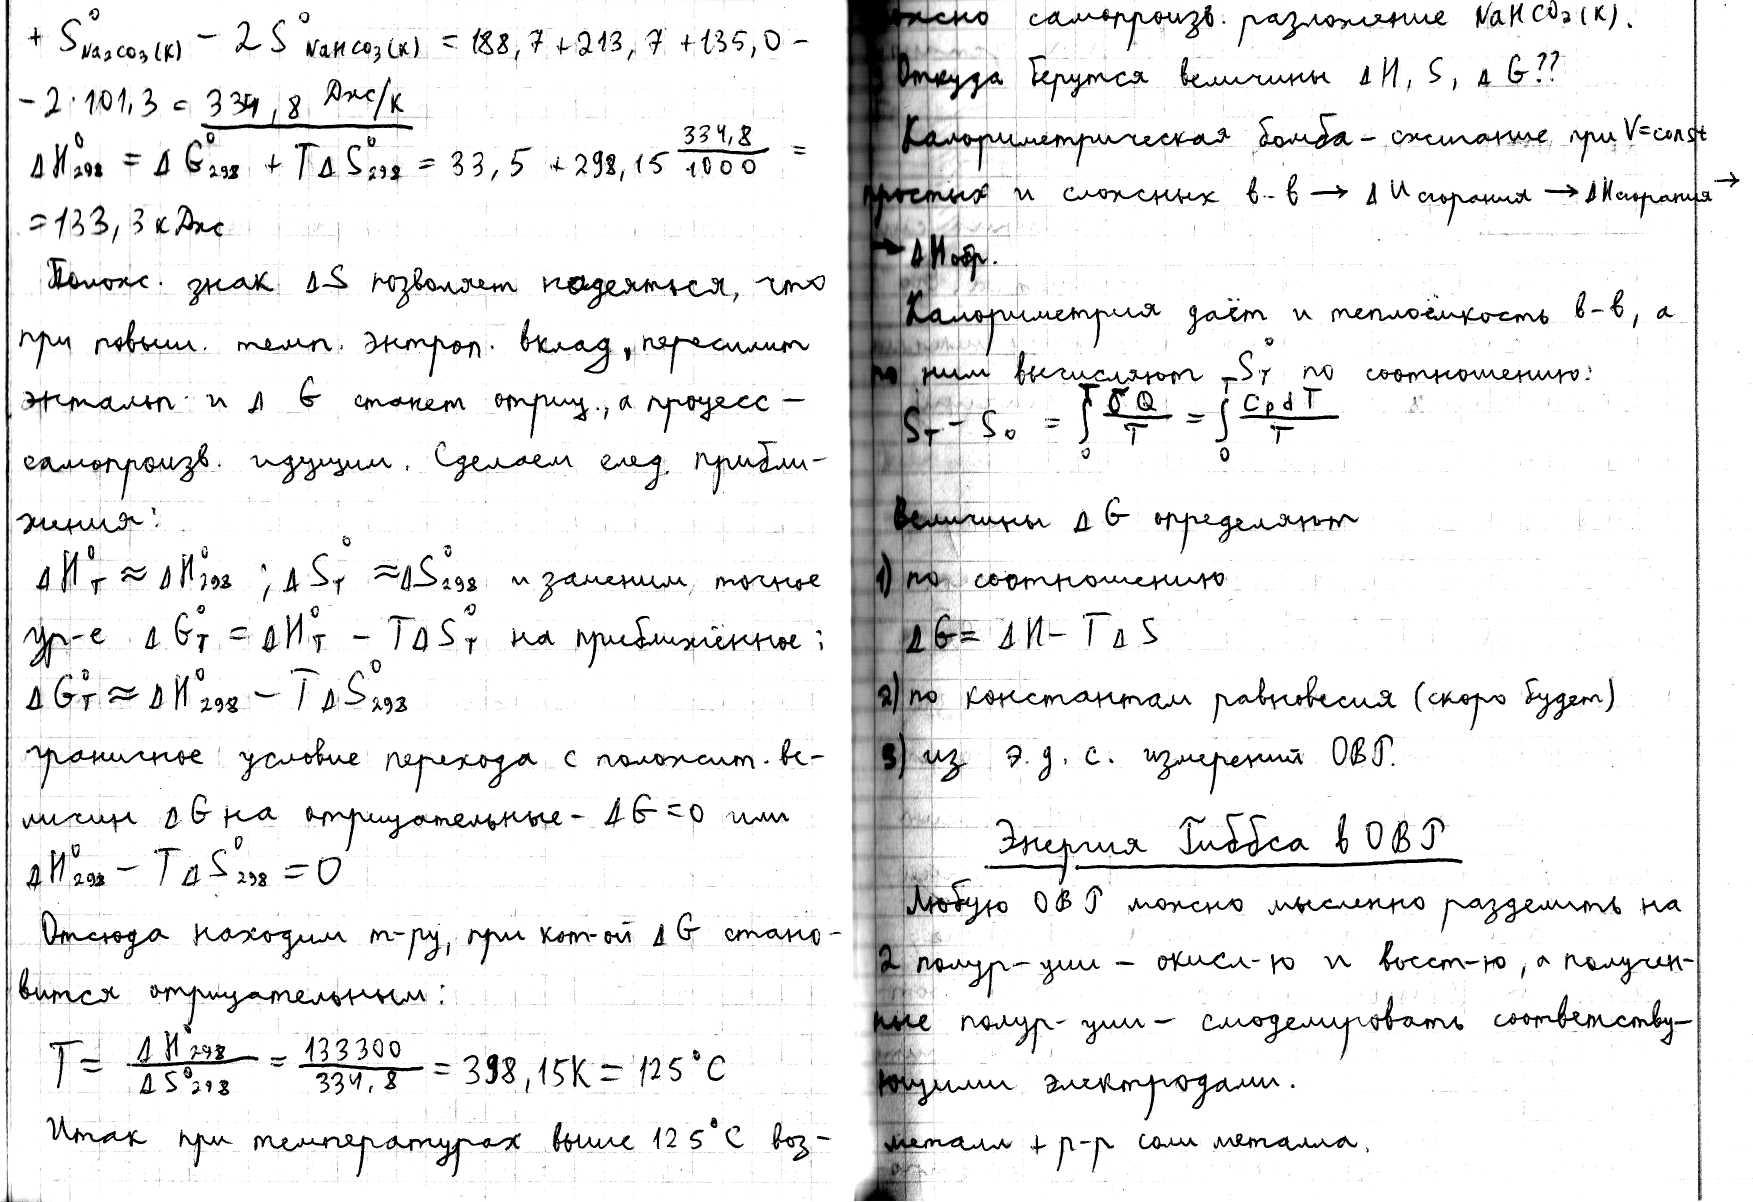 + S°Na₂CO₃(к) − 2S°NaHCO₃(к) = 188,7 + 213,7 + 135,0 −
− 2·101,3 = 334,8 Дж/К
ΔH°₂₉₈ = ΔG°₂₉₈ + TΔS°₂₉₈ = 33,5 + 298,15 334,8/1000 =
= 133,3 кДж
Полож. знак ΔS позволяет надеяться, что
при повыш. темп. энтроп. вклад, пересилит
энтальп. и ΔG станет отриц., а процесс −
самопроизв. идущим. Сделаем след. прибли-
жения:
ΔH°T ≈ ΔH°₂₉₈ ; ΔS°T ≈ ΔS°₂₉₈ и заменим точное
ур-е ΔG°T = ΔH°T − TΔS°T на приближённое:
ΔG°T ≈ ΔH°₂₉₈ − TΔS°₂₉₈
граничное условие перехода с положит. ве-
личин ΔG на отрицательные − ΔG = 0 или
ΔH°₂₉₈ − TΔS°₂₉₈ = 0
Отсюда находим т-ру, при кот-ой ΔG стано-
вится отрицательным:
T = ΔH°₂₉₈/ΔS°₂₉₈ = 133300/334,8 = 398,15К = 125°C
Итак при температурах выше 125°C воз-
можно самопроизв. разложение NaHCO₃(к).
Откуда берутся величины ΔH, S, ΔG??
Калориметрическая бомба − сжигание при V=const
простых и сложных в-в → ΔU сгорания → ΔH сгорания →
→ ΔH обр.
Калориметрия даёт и теплоёмкость в-в, а
по ним вычисляют S°T по соотношению:
ST − S₀ = ∫₀ᵀ δQ/T = ∫₀ᵀ CpdT/T
Величины ΔG определяют
1) по соотношению
ΔG = ΔH − TΔS
2) по константам равновесия (скоро будет)
3) из э.д.с. измерений ОВР.
Энергия Гиббса в ОВР
Любую ОВР можно мысленно разделить на
2 полур-ции − окисл-ю и восст-ю, а получен-
ные полур-ции − смоделировать соответству-
ющими электродами.
металл + р-р соли металла.